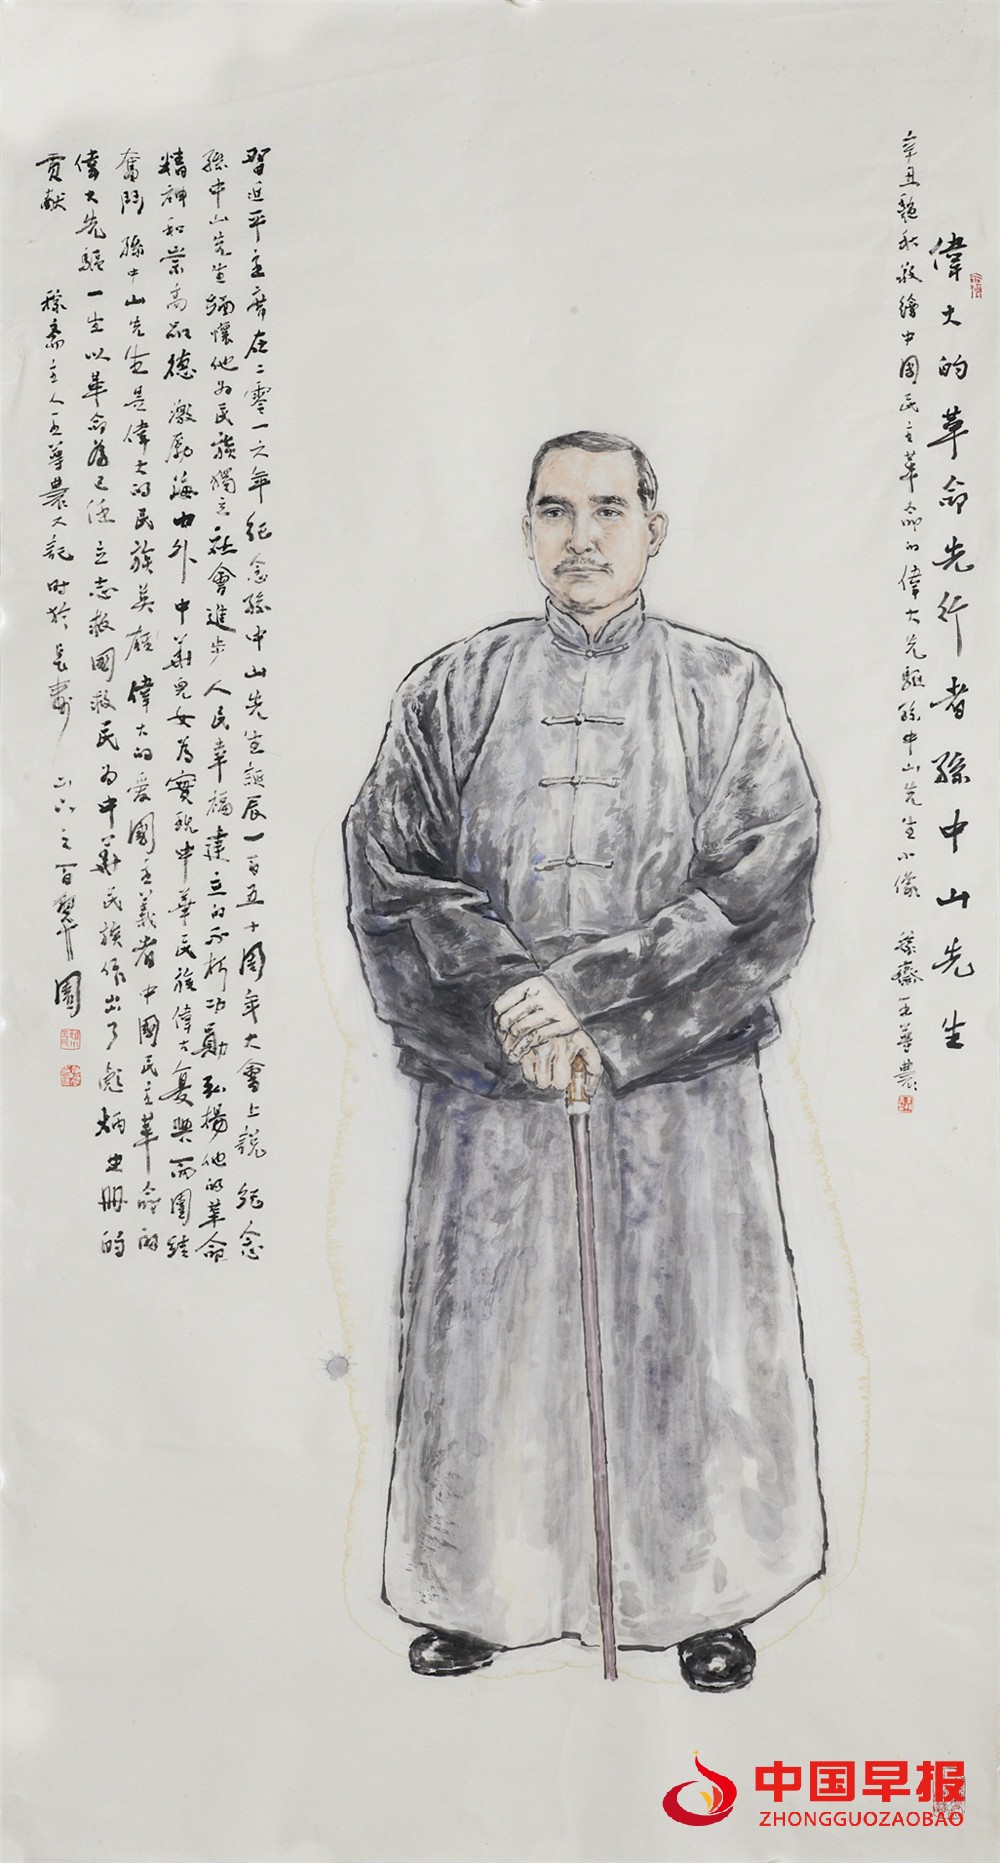 偉大的革命先行者孫中山先生
辛丑艷秋敬繪中國民主革命的偉大先驅孫中山先生小像 稼齋王尊農
習近平主席在二零一六年紀念孫中山先生誕辰一百五十周年大會上說 紀念
孫中山先生緬懷他為民族獨立社會進步人民幸福建立的不朽功勳弘揚他的革命
精神和崇高品德激勵海內外中華兒女為實現中華民族偉大復興而團結
奮鬥 孫中山先生是偉大的民族英雄偉大的爱國主義者中國民主革命的
偉大先驅一生以革命為己任立志救國救民为中華民族作出了彪炳史冊的
貢献 稼齋主人王尊農又記时於 山 之百 園
中国早报
ZHONGGUOZAOBAO